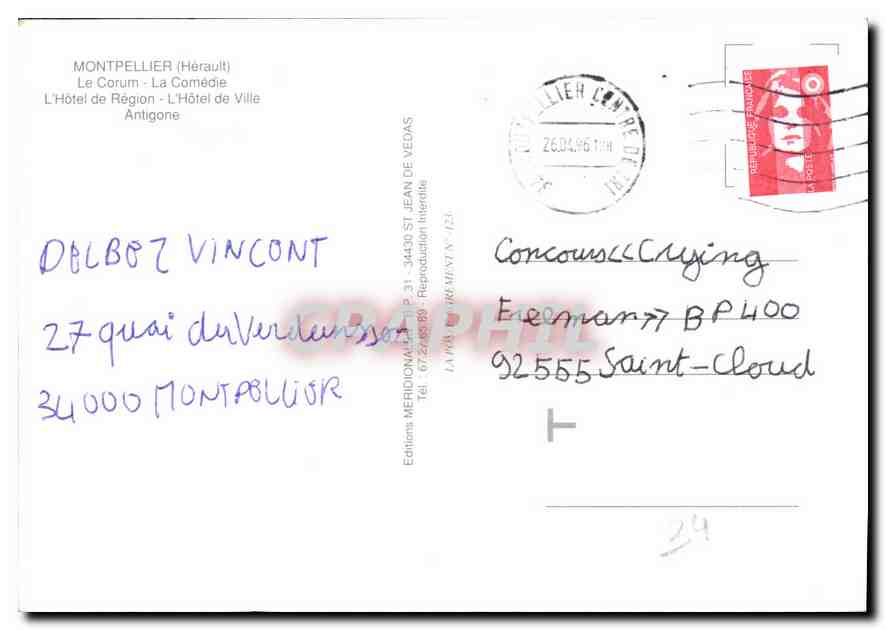 MONTPELLIER (Hérault)
Le Corum - La Comédie
L'Hôtel de Région - L'Hôtel de Ville
Antigone
DELBEZ VINCENT
27 quai du Verdanson
34000 MONTPELLIER
31 - 34430 ST JEAN DE VEDAS
Reproduction Interdite
LA POSTE
N° 123
CENTRE DE TRI
26.04.96
RÉPUBLIQUE FRANÇAISE
LA POSTE
Concours << Crying
Freeman >> BP 400
92555 Saint-Cloud
T
24
GRAPHIL